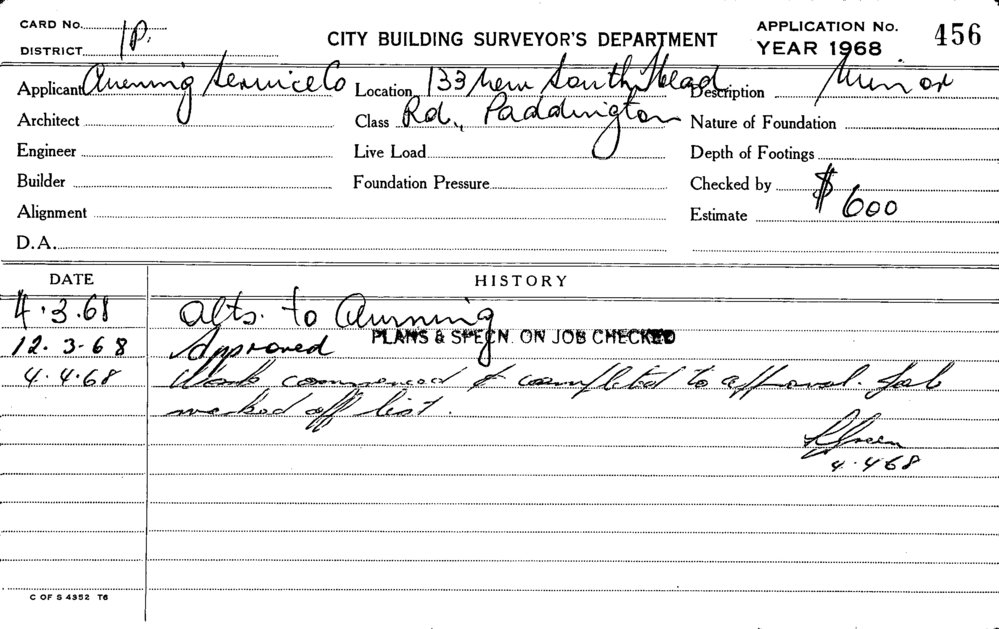 CARD No.
DISTRICT 1P.
CITY BUILDING SURVEYOR'S DEPARTMENT
APPLICATION No. 456
YEAR 1968
Applicant Awning Service Co Location 133 New South Head Description Minor
Architect Class Rd., Paddington Nature of Foundation
Engineer Live Load Depth of Footings
Builder Foundation Pressure Checked by
Alignment Estimate $600
D.A.
DATE HISTORY
4.3.68 Alts. to Awning
12.3-68 Approved PLANS & SPECN. ON JOB CHECKED
4.4.68 Work commenced & completed to approval. Job
marked off list.
Green
4.4.68
C OF S 4352 T6